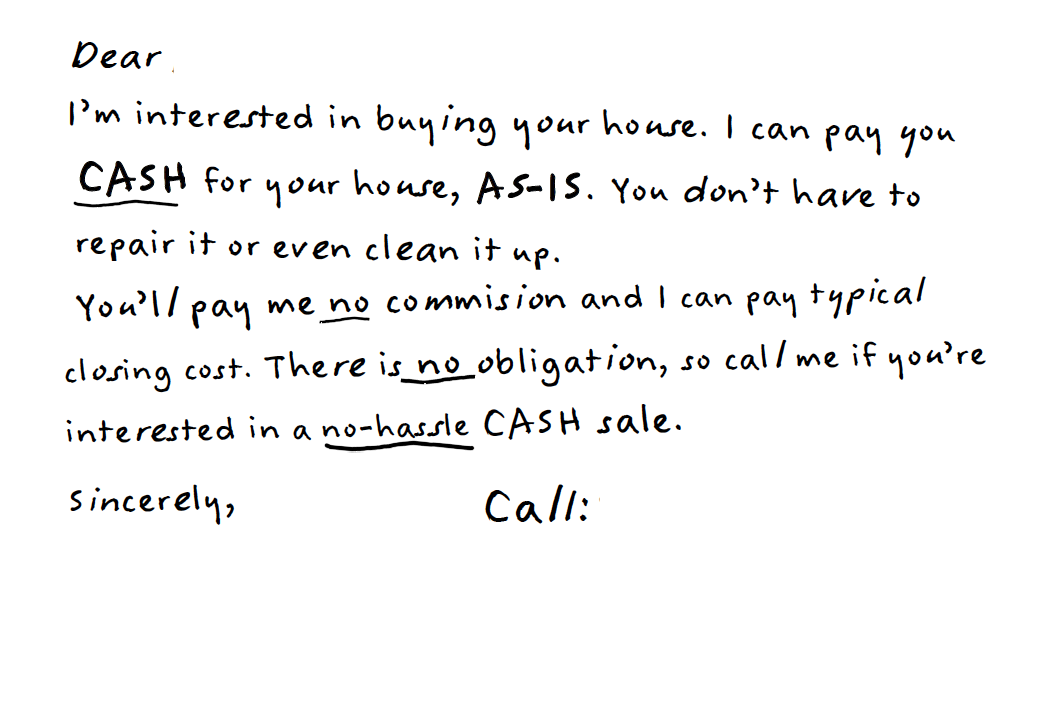 Dear
I'm interested in buying your house. I can pay you
CASH for your house, AS-IS. You don't have to
repair it or even clean it up.
You'll pay me no commision and I can pay typical
closing cost. There is no obligation, so call me if you're
interested in a no-hassle CASH sale.
Sincerely, Call: